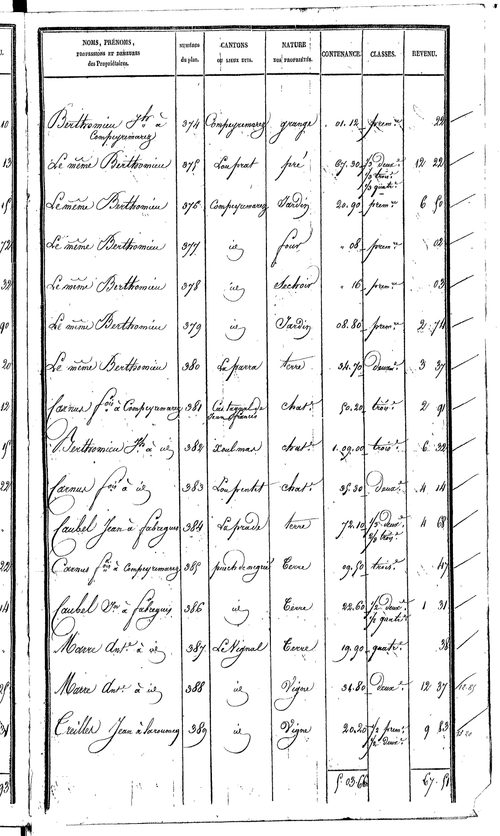 NOMS, PRÉNOMS, PROFESSIONS ET DEMEURES des Propriétaires. NUMÉROS du plan. CANTONS OU LIEUX DITS. NATURE DES PROPRIÉTÉS. CONTENANCE. CLASSES. REVENU.
Berthomieu Jh à Compeyremarez 374 Compeyremarez grange " 01.12 prem.re " 22
Le même Berthomieu 375 Lou prat pré 67.30 1/3 deux.e 1/3 trois.e 1/3 quatr.e 12 22
Le même Berthomieu 376 Compeyremarez Jardin 20.90 prem.re 6 50
Le même Berthomieu 377 id four " 08 prem.re " 02
Le même Berthomieu 378 id Sechoir " 16 prem.re " 03
Le même Berthomieu 379 id Jardin 08.80 prem.re 2 74
Le même Berthomieu 380 La parra terre 34.70 deux.e 3 37
Carnus fois à Compeyremarez 381 Castagnal de Jean francés chat.r 50.20 trois.e 2 91
Berthomieu Jh à id 382 chat.r 1.09.00 trois.e 6 32
Carnus fois à id 383 chat.r 35.30 Deux.e 4 14
Caubel Jean à fabreguis 384 La prade terre 72.10 1/3 deux.e 2/3 trois.e 4 68
Carnus fois à Compeyremarez 385 Terre 09.50 trois.e " 47
Caubel à fabreguis 386 id Terre 22.60 1/2 deux.e 1/2 quatr.e 1 31
Marre Ant.e à id 387 Le Vignal Terre 19.90 quatr.e " 38
Marre Ant.e à id 388 id Vigne 34.80 deux.e 12 37
Creilles Jean à 389 id Vigne 20.20 1/2 prem.re 1/2 deux.e 9 83
5.03.66 67.51